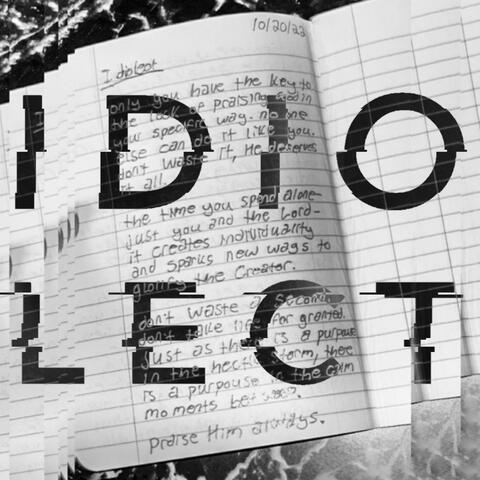 10/20/22
Idiolect
IDIO
LECT
only you have the key to
the lock of praising God in
your specific way. no one
else can do it like you.
don't waste it, He deserves
it all.
the time you spend alone-
just you and the Lord-
it creates individuality
and sparks new ways to
glorify the Creator.
don't waste a second.
don't take life for granted.
just as there is a purpose
in the hectic storm, there
is a purpouse in the calm
moments between.
praise Him always.